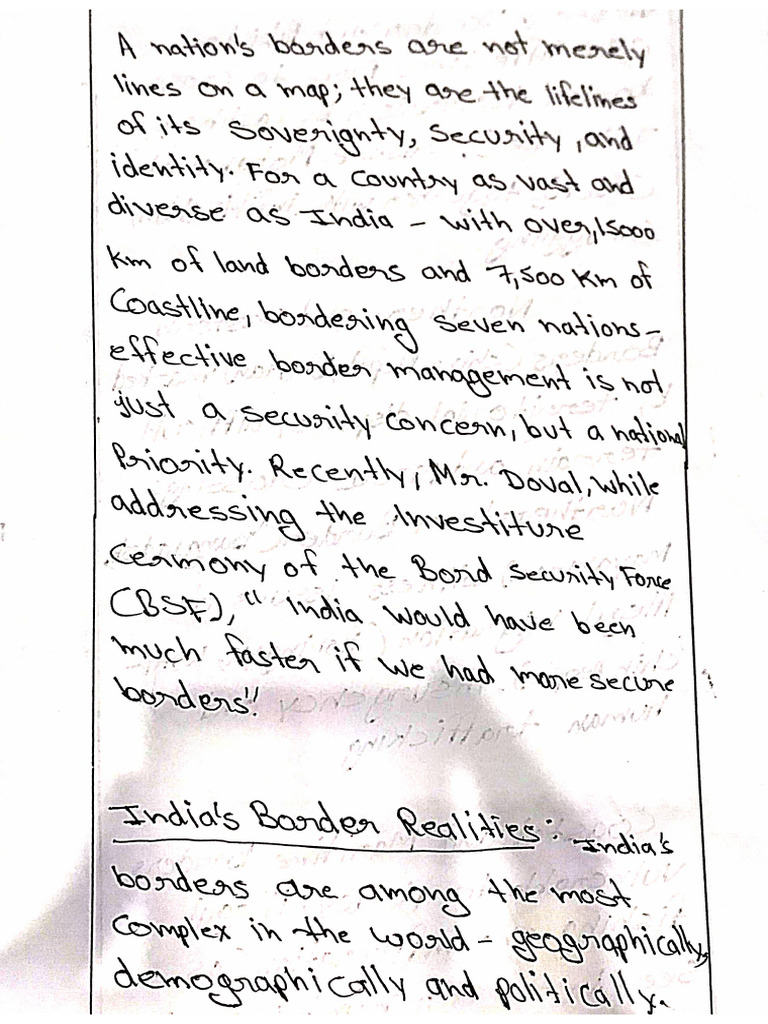 A nation's borders are not merely
lines on a map; they are the lifelines
of its Soverignty, Security, and
identity. For a Country as vast and
diverse as India – with over,15000
km of land borders and 7,500 Km of
Coastline, bordering Seven nations–
effective border management is not
just a security Concern, but a national
Priority. Recently, Mr. Doval, while
addressing the Investiture
Cermony of the Bord Security Force
(BSF), " India would have been
much faster if we had more secure
borders".
India's Border Realities: India's
borders are among the most
Complex in the world – geographically,
demographically and politically.